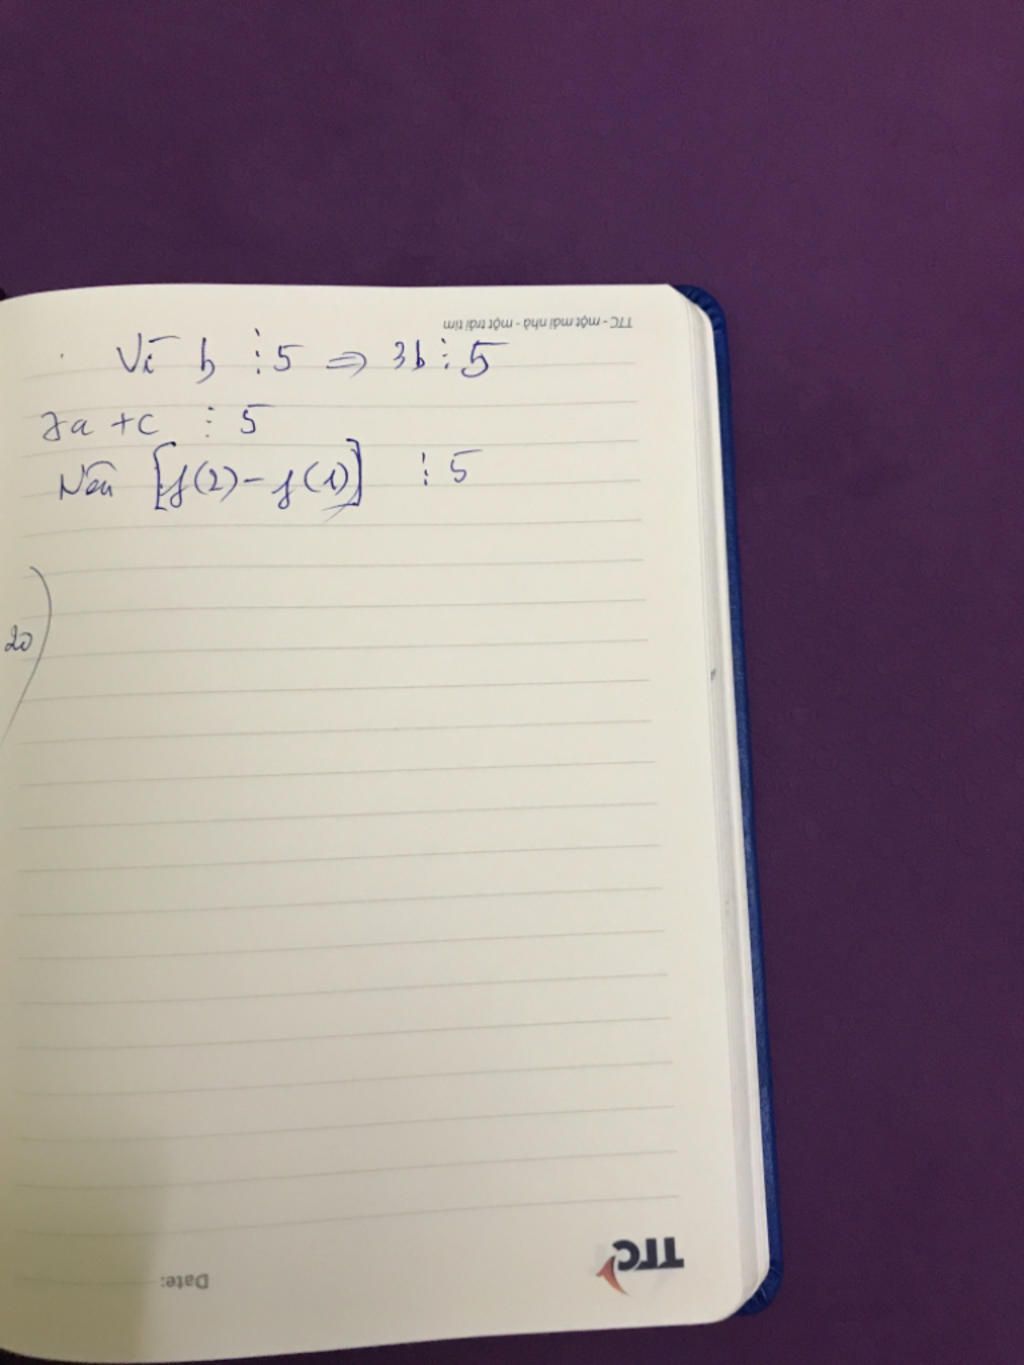 TTC - một mái nhà - một trái tim
Vì b ⋮ 5 => 3b ⋮ 5
7a + c ⋮ 5
Nên [f(2) - f(1)] ⋮ 5
20
TTC
Date: